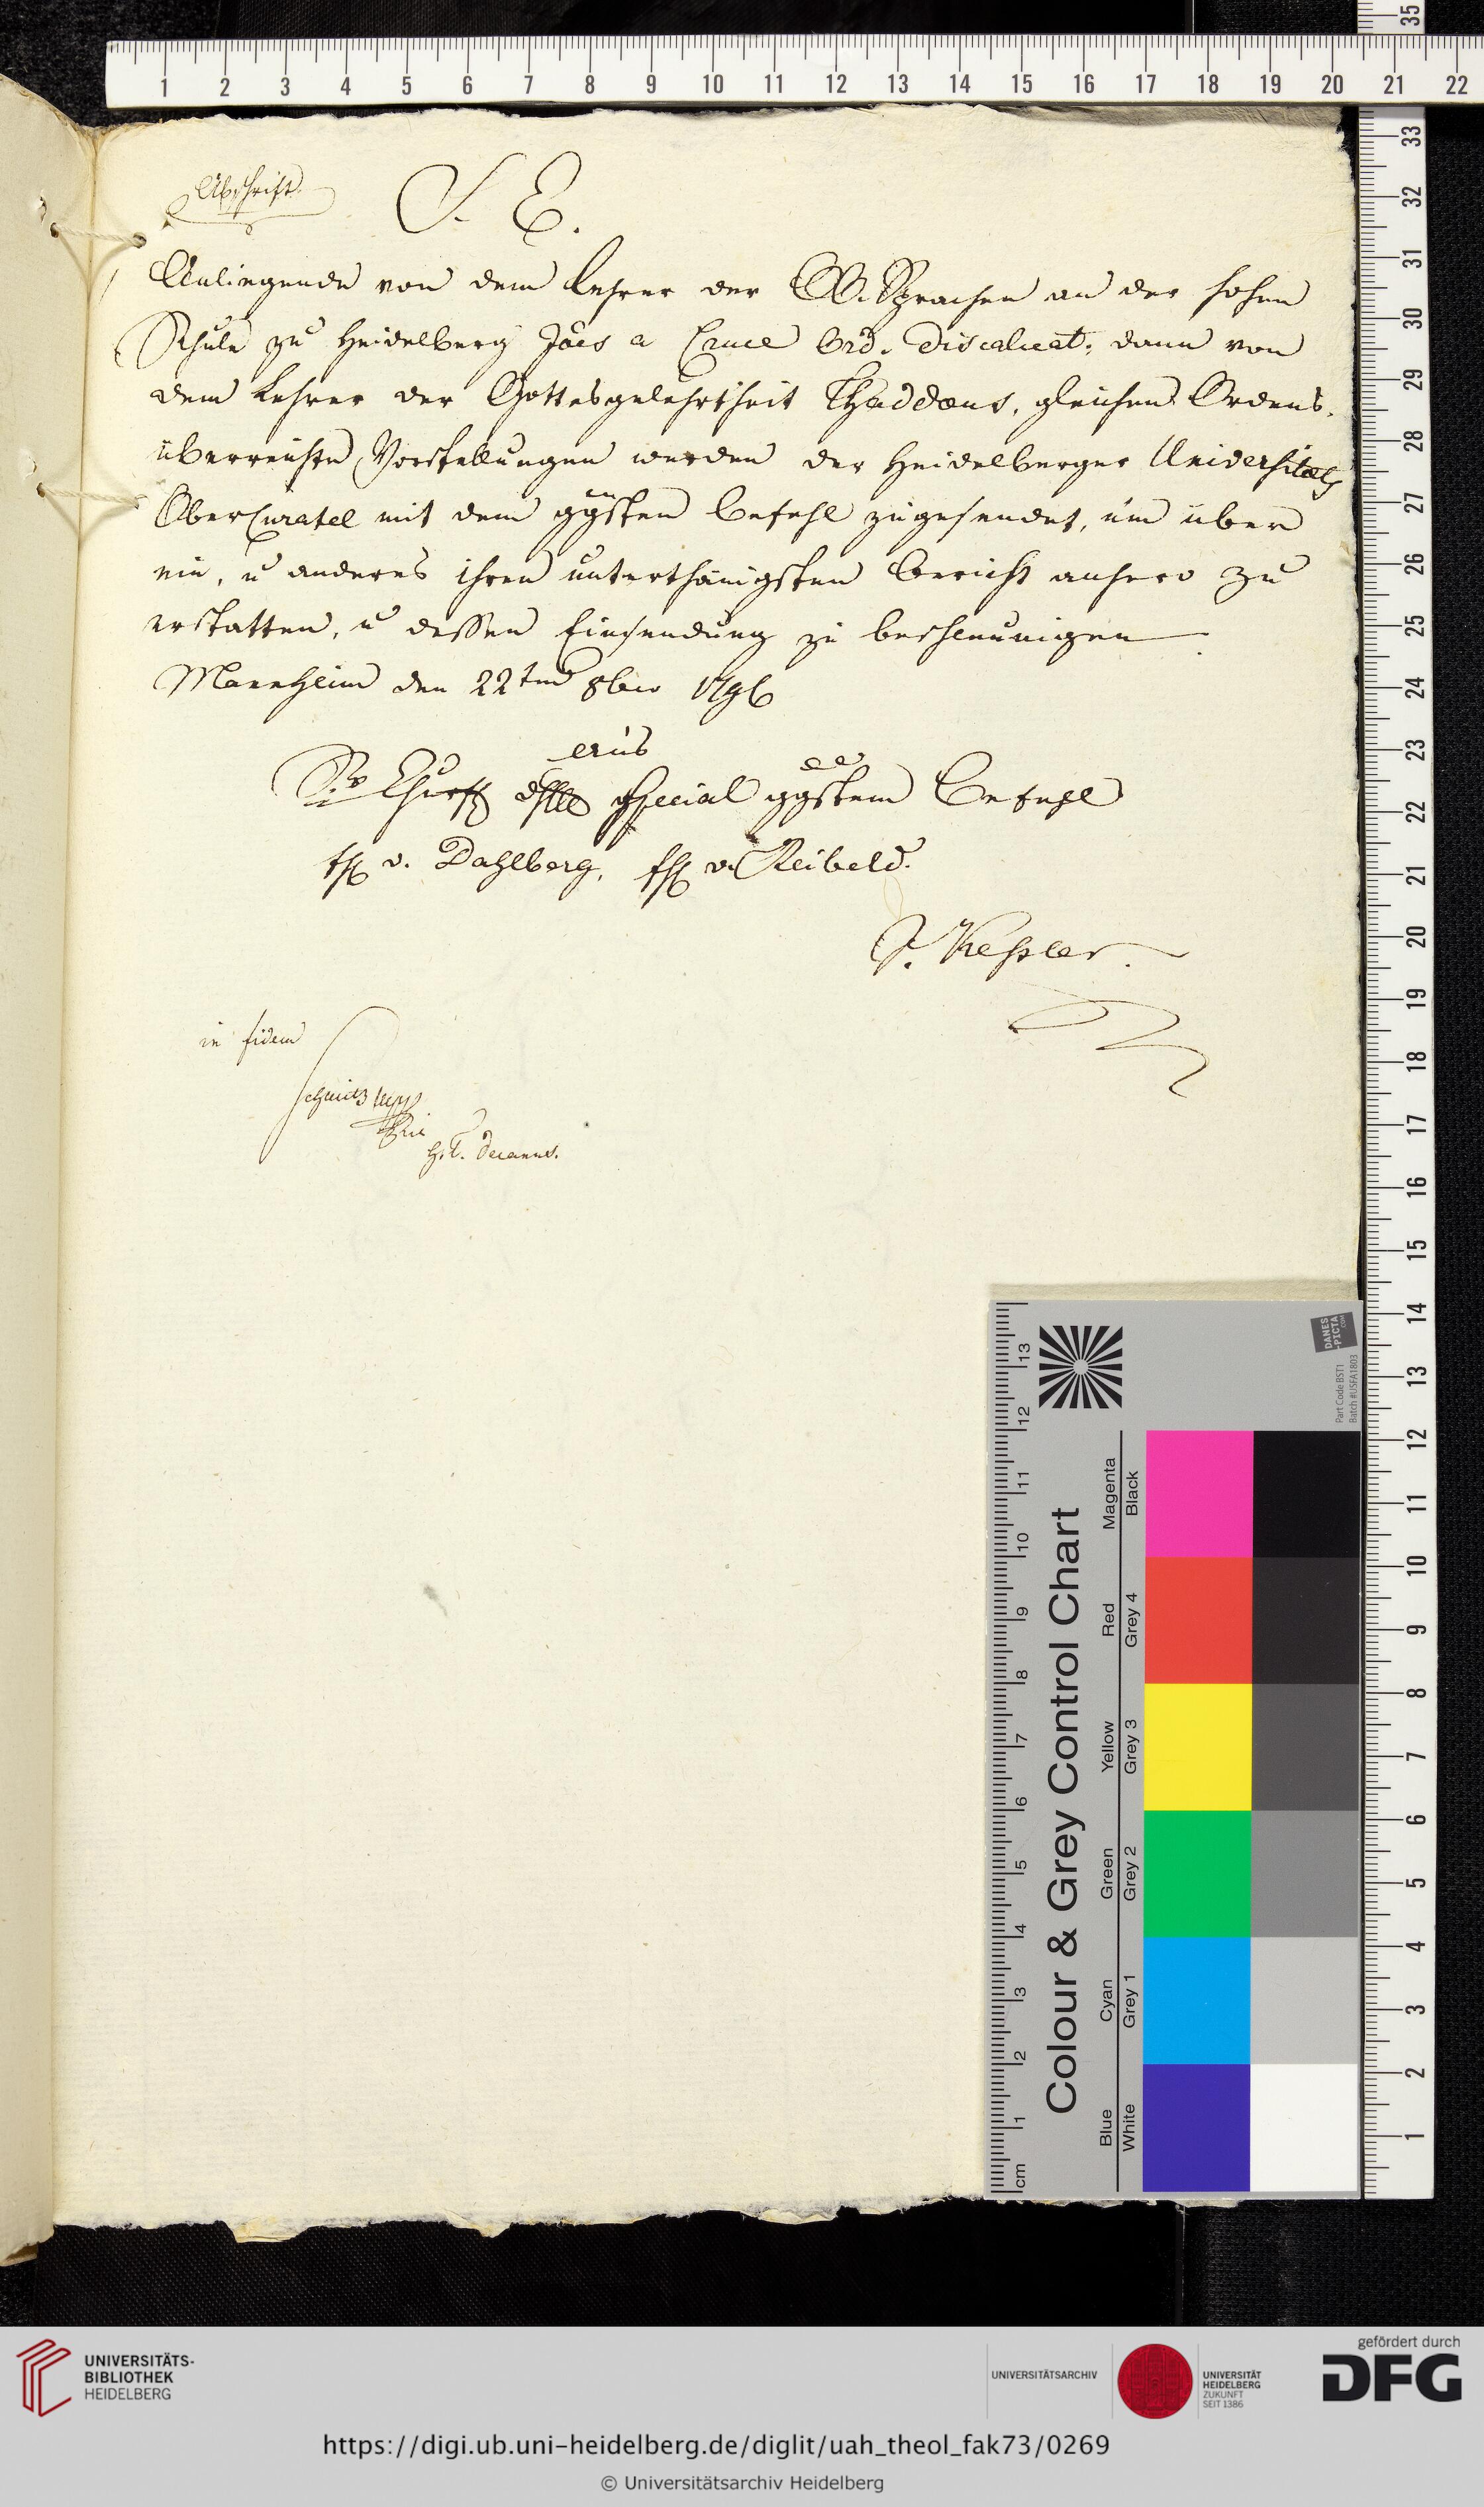 Abschrift.
S. E.
Anliegende von dem Lehrer der OO. Sprachen an der hohen
Schule zu Heidelberg Joës a Cruce Ord. Discalceat; dann von
dem Lehrer der Gottesgelehrtheit Thaddæus, gleichen Ordens,
überreichte Vorstellungen werden der Heidelberger Universitæts
OberCuratel mit dem ggsten Befehl zugesendet, um über
ein, u anderes ihren unterthänigsten Bericht anhero zu
erstatten, u dessen Einsendung zu beschleunigen
Mannheim den 22ten 8bris 1796
aus
Sr Churff special ggstem Befehl
v. Dahlberg, v. Reibeld.
S. Kessler.
in fidem
Schmitz
h. t. Decanus.
1 2 3 4 5 6 7 8 9 10 11 12 13 14 15 16 17 18 19 20 21 22
35
33 32 31 30 29 28 27 26 25 24 23 22 21 20 19 18 17 16 15 14 13 12 11 10 9 8 7 6 5 4 3 2 1
DANES
-PICTA
.COM
Part Code BST1
Batch #USFA1803
13 12 11 10 9 8 7 6 5 4 3 2 1 cm
Colour & Grey Control Chart
Blue Cyan Green Yellow Red Magenta
White Grey 1 Grey 2 Grey 3 Grey 4 Black
UNIVERSITÄTS-
BIBLIOTHEK
HEIDELBERG
UNIVERSITÄTSARCHIV
UNIVERSITÄT
HEIDELBERG
ZUKUNFT
SEIT 1386
gefördert durch
DFG
https://digi.ub.uni-heidelberg.de/diglit/uah_theol_fak73/0269
© Universitätsarchiv Heidelberg